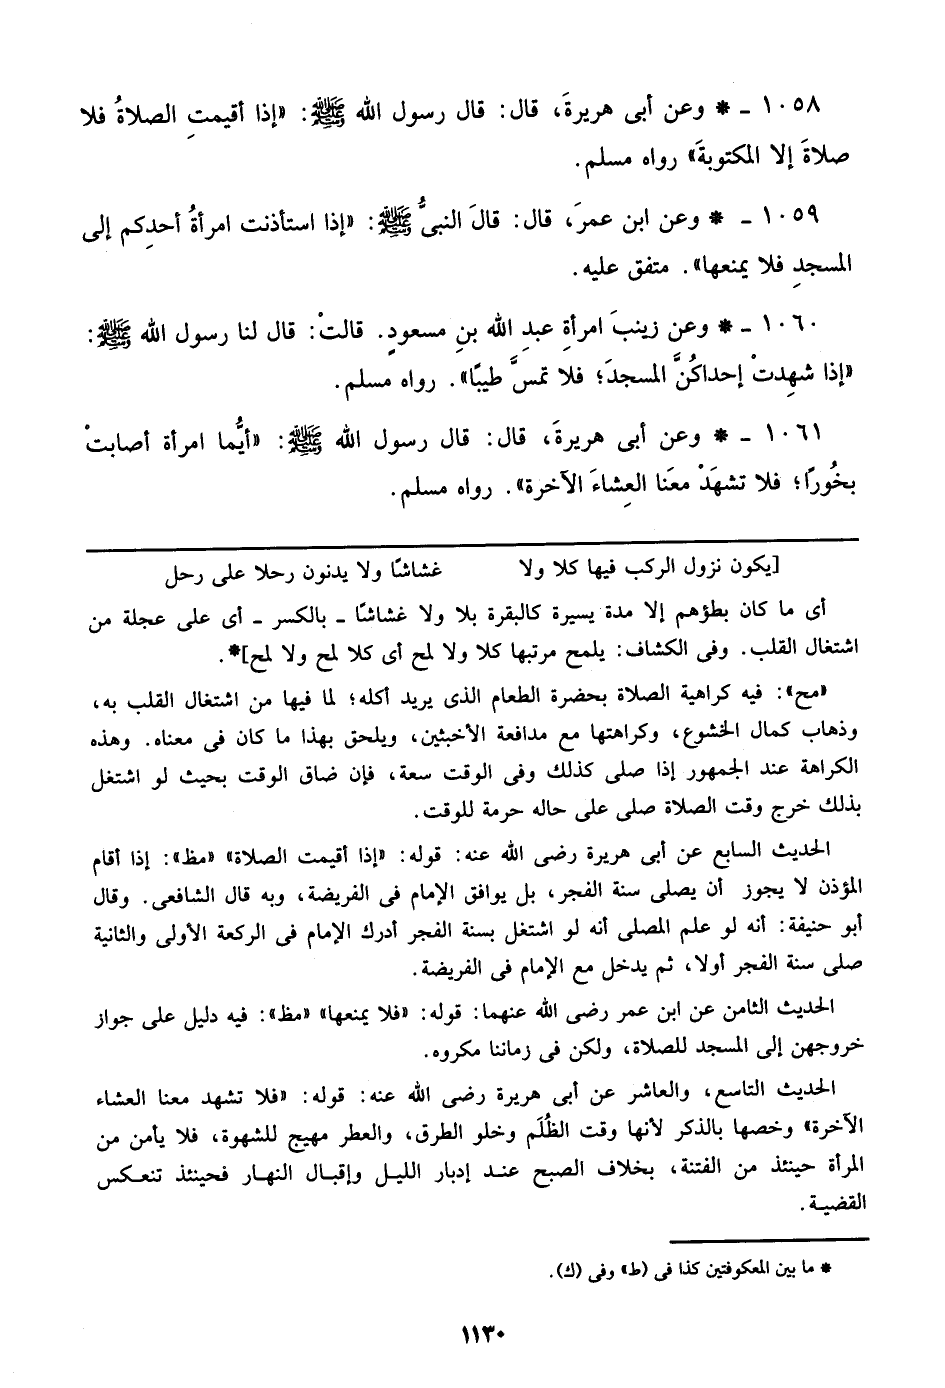 ١٠٥٨ ـ * وعن أبى هريرةَ، قال: قال رسول الله ﷺ: «إذا أقيمتِ الصلاةُ فلا
صلاةَ إلا المكتوبةَ» رواه مسلم.
١٠٥٩ ـ * وعن ابن عمرَ، قال: قالَ النبىُّ ﷺ: «إذا استأذنت امرأةُ أحدِكم إلى
المسجدِ فلا يمنعها». متفق عليه.
١٠٦٠ ـ * وعن زينبَ امرأةِ عبدِ الله بنِ مسعودٍ. قالتْ: قال لنا رسول الله ﷺ:
«إذا شهِدتْ إحداكُنَّ المسجدَ؛ فلا تمسَّ طيبًا». رواه مسلم.
١٠٦١ ـ * وعن أبى هريرةَ، قال: قال رسول الله ﷺ: «أيُّما امرأة أصابتْ
بخُورًا؛ فلا تشهَدْ معَنا العِشاءَ الآخرة». رواه مسلم.
[يكون نزول الركب فيها كلا ولا غشاشًا ولا يدنون رحلا على رحل
أى ما كان بطؤهم إلا مدة يسيرة كالبقرة بلا ولا غشاشًا ـ بالكسر ـ أى على عجلة من
اشتغال القلب. وفى الكشاف: يلمح مرتبها كلا ولا لمح أى كلا لمح ولا لمح]*.
«مح»: فيه كراهية الصلاة بحضرة الطعام الذى يريد أكله؛ لما فيها من اشتغال القلب به،
وذهاب كمال الخشوع، وكراهتها مع مدافعة الأخبثين، ويلحق بهذا ما كان فى معناه. وهذه
الكراهة عند الجمهور إذا صلى كذلك وفى الوقت سعة، فإن ضاق الوقت بحيث لو اشتغل
بذلك خرج وقت الصلاة صلى على حاله حرمة للوقت.
الحديث السابع عن أبى هريرة رضى الله عنه: قوله: «إذا أقيمت الصلاة» «مظ»: إذا أقام
المؤذن لا يجوز أن يصلى سنة الفجر، بل يوافق الإمام فى الفريضة، وبه قال الشافعى. وقال
أبو حنيفة: أنه لو علم المصلى أنه لو اشتغل بسنة الفجر أدرك الإمام فى الركعة الأولى والثانية
صلى سنة الفجر أولا، ثم يدخل مع الإمام فى الفريضة.
الحديث الثامن عن ابن عمر رضى الله عنهما: قوله: «فلا يمنعها» «مظ»: فيه دليل على جواز
خروجهن إلى المسجد للصلاة، ولكن فى زماننا مكروه.
الحديث التاسع، والعاشر عن أبى هريرة رضى الله عنه: قوله: «فلا تشهد معنا العشاء
الآخرة» وخصها بالذكر لأنها وقت الظُلَم وخلو الطرق، والعطر مهيج للشهوة، فلا يأمن من
المرأة حينئذ من الفتنة، بخلاف الصبح عند إدبار الليل وإقبال النهار فحينئذ تنعكس
القضية.
* ما بين المعكوفتين كذا فى (ط) وفى (ك).
١١٣٠